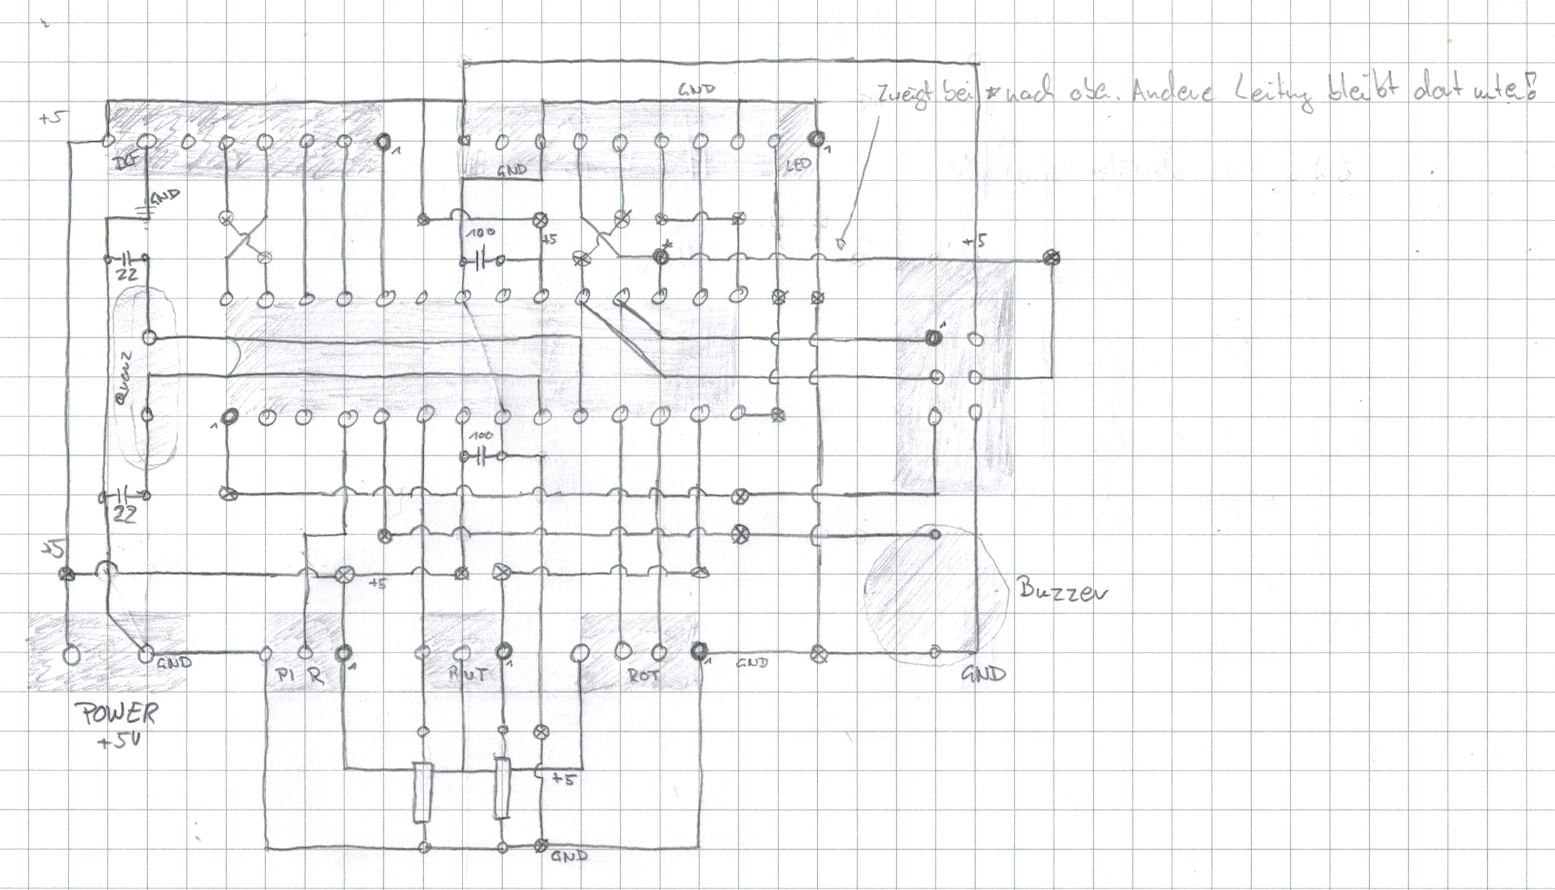 GND
Zweigt bei * nach oben. Andere Leitung bleibt dort unten!
+5
1
1
DCF
GND
LED
GND
100
+5
*
+5
22
1
Quarz
1
100
22
+5
+5
Buzzer
1
1
1
GND
PIR
BUT
ROT
GND
GND
POWER
+5V
+5
GND